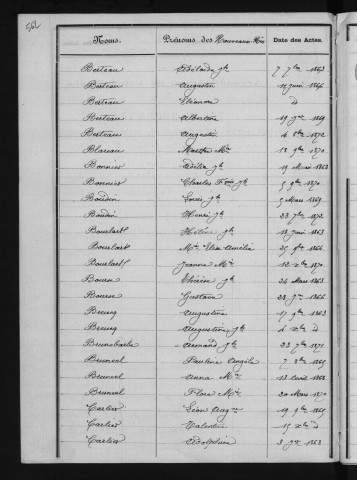 562
Noms. Prénoms des Nouveaux-Nés Date des Actes.
Berteau Adélaïde jh 7 7bre 1863
Berteau Augustin 11 juin 1866
Berteau Eléonore d
Berteau Albertine 19 9bre 1869
Berteau Auguste 4 8bre 1872
Blareau Martha Mie 18 9bre 1870
Bonnier 19 Mai 1863
Bonnier Charles Fois jh 5 9bre 1870
Boudin Louis jh 5 Mars 1869
Boudin Henri jh 23 7bre 1872
Boulart Hélène jh 18 juin 1863
Boulart Mie Elisa Amélie 25 9bre 1866
Boulart Jeanne Mie 12 Xbre 1870
Bourse Thérèse jh 24 Mars 1863
Bourse Gustave 23 9bre 1866
Breucq Augustine 17 9bre 1863
Breucq Augustine jh 4 Xbre d
Armand jh 23 7bre 1871
Bruneel Pauline Angèle 7 8bre 1865
Bruneel Anna Mie 13 Avril 1868
Bruneel Flore Mie 20 Mars 1870
Carlier Léon Augte 19 9bre 1865
Carlier Valentin 15 Xbre d
Carlier Adolphine 3 9bre 1863